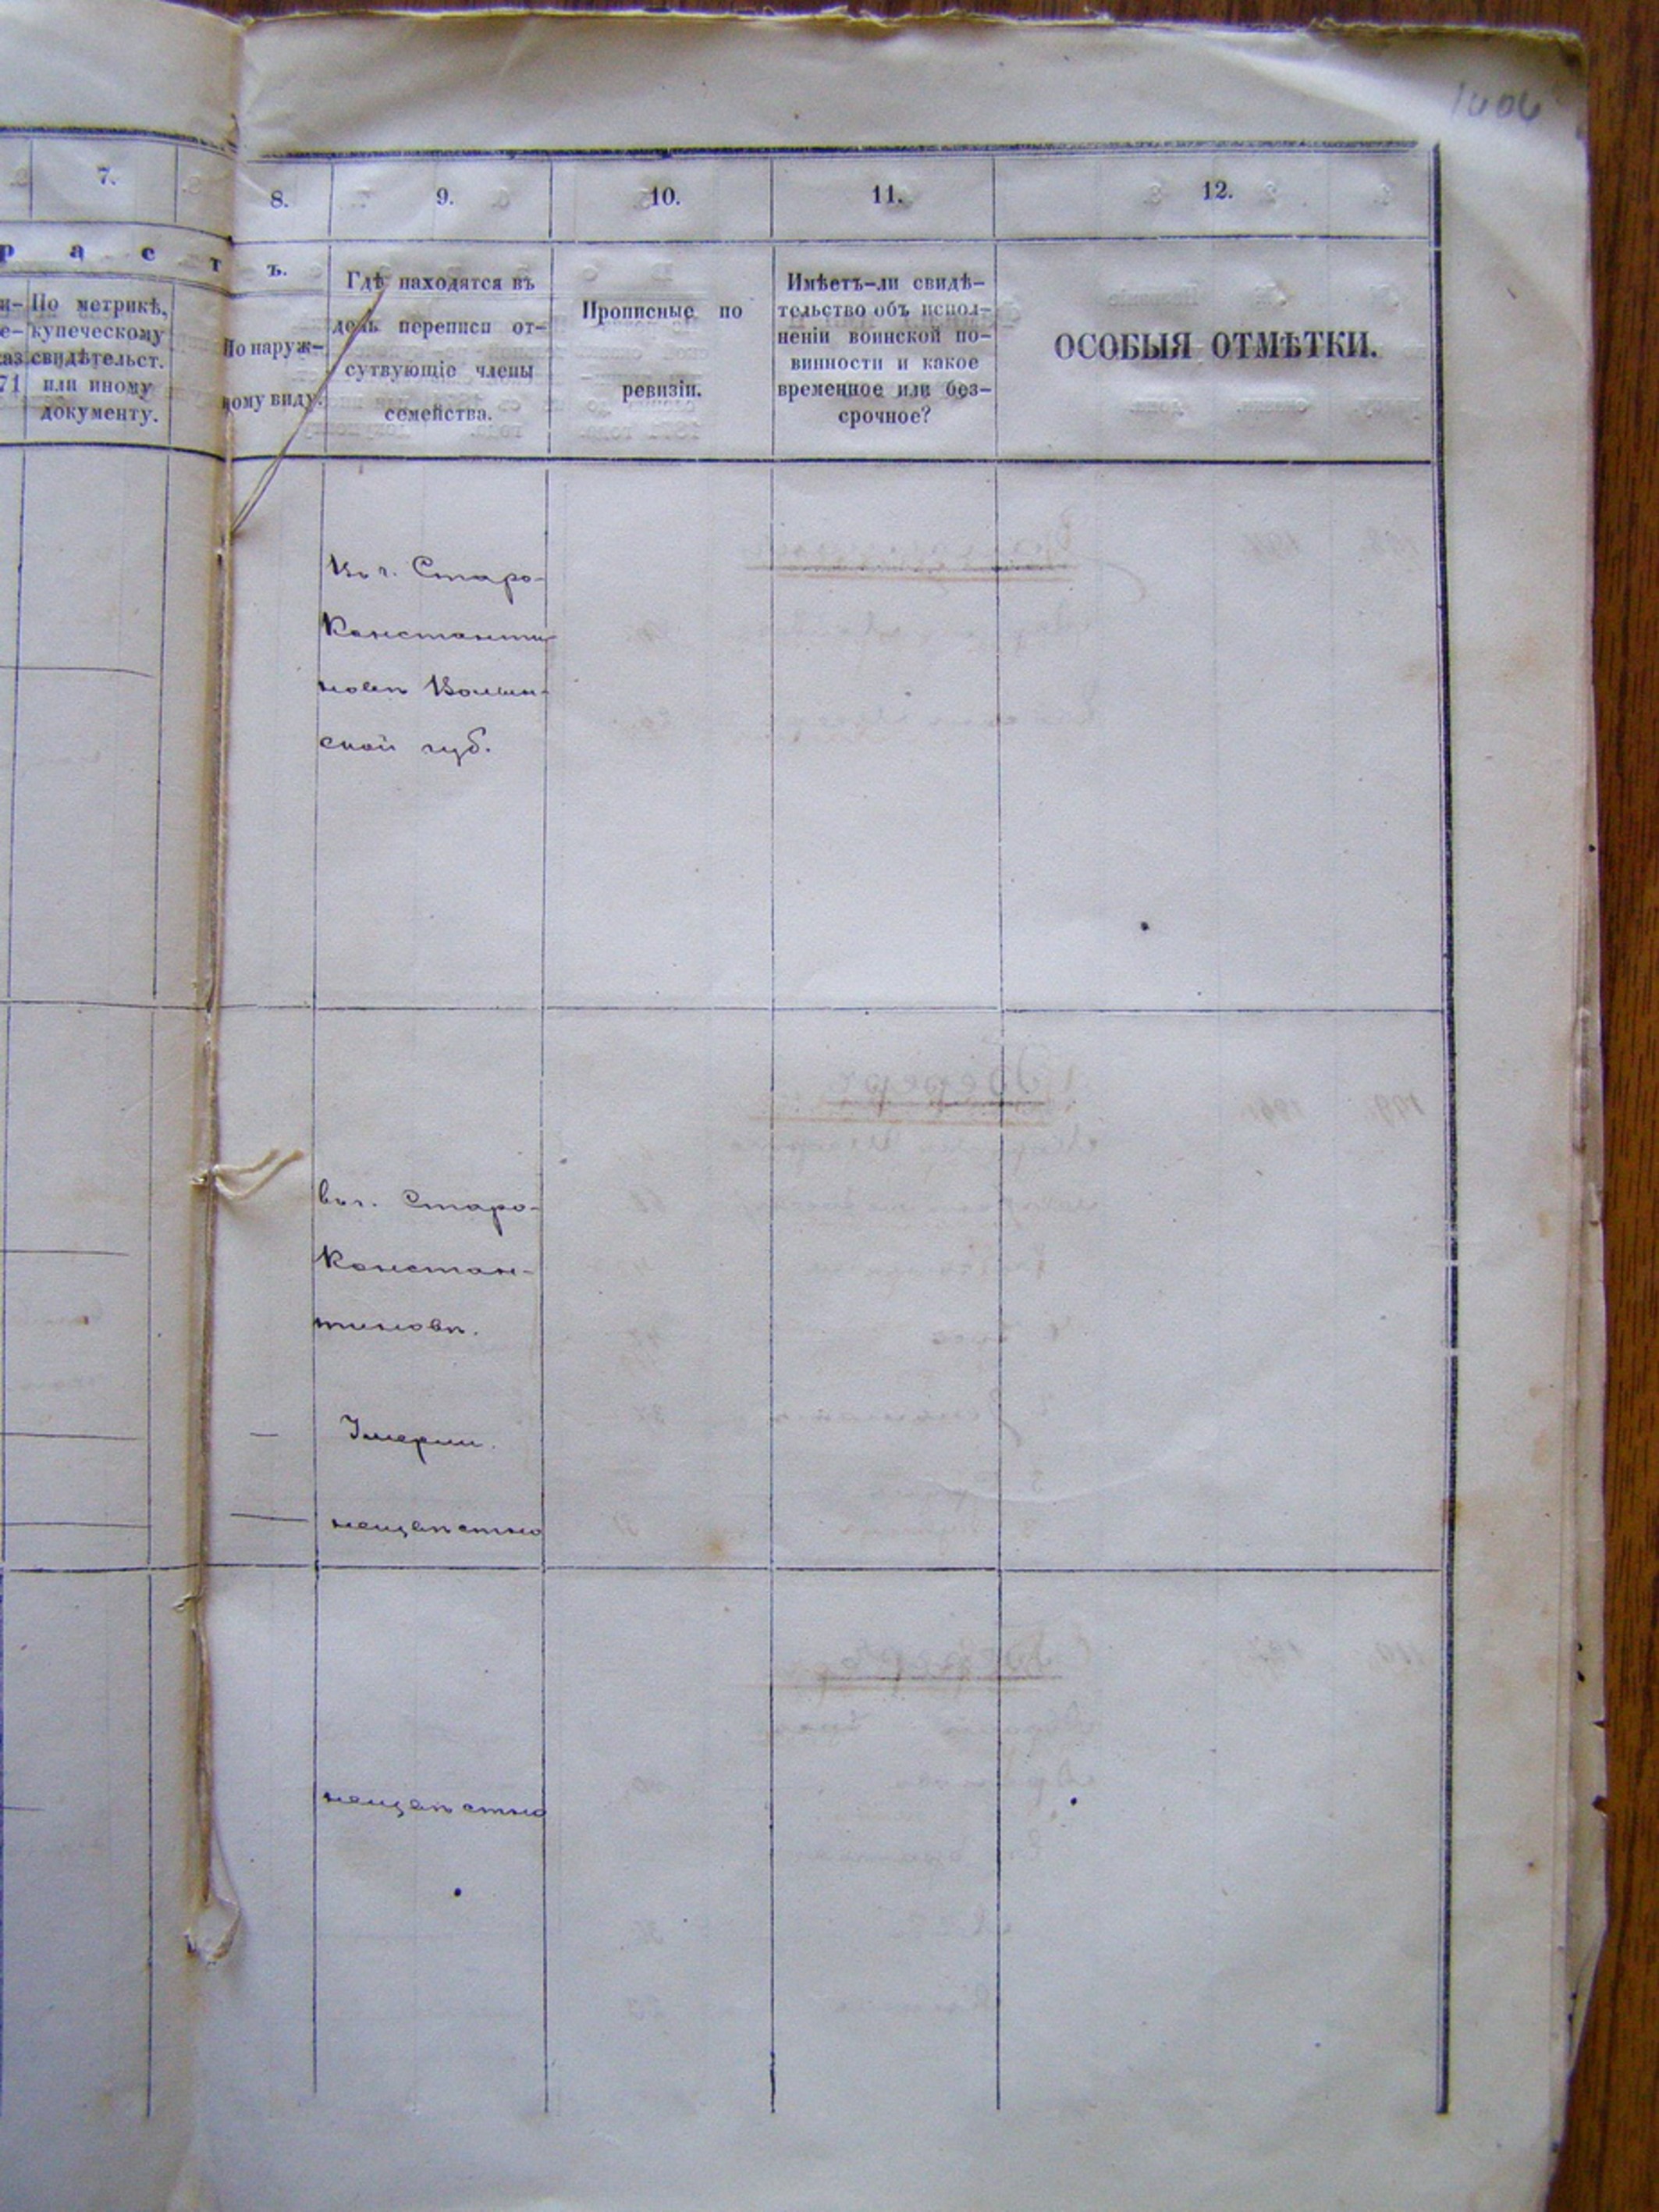 7.
8.
9.
10.
11.
12.
р а с т ъ.
и-
е-
каз
71
По метрикѣ,
купеческому
свидѣтельст.
или иному
документу.
По наруж-
ному виду.
Гдѣ находятся въ
день переписи от-
сутвующіе члены
семейства.
Прописные по
ревизіи.
Имѣетъ-ли свидѣ-
тельство объ испол-
неніи воинской по-
винности и какое
временное или без-
срочное?
ОСОБЫЯ ОТМѢТКИ.
Въ г. Старо-
Константи
новѣ Волын-
ской губ.
въ г. Старо-
Констан-
тиновѣ.
Умерли.
неизвѣстно
неизвѣстно